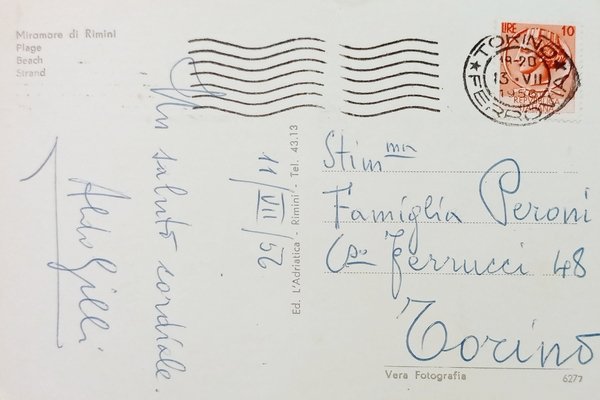 Miramare di Rimini
Plage
Beach
Strand
LIRE 10
TORINO
18-20
13 · VII
FERROVIA
Un saluto cordiale.
Aldo Gilli
11/VII/56
Ed. L'Adriatica - Rimini - Tel. 43.13
Stim ma
Famiglia Peroni
Cso Ferrucci 48
Torino
Vera Fotografia
6277